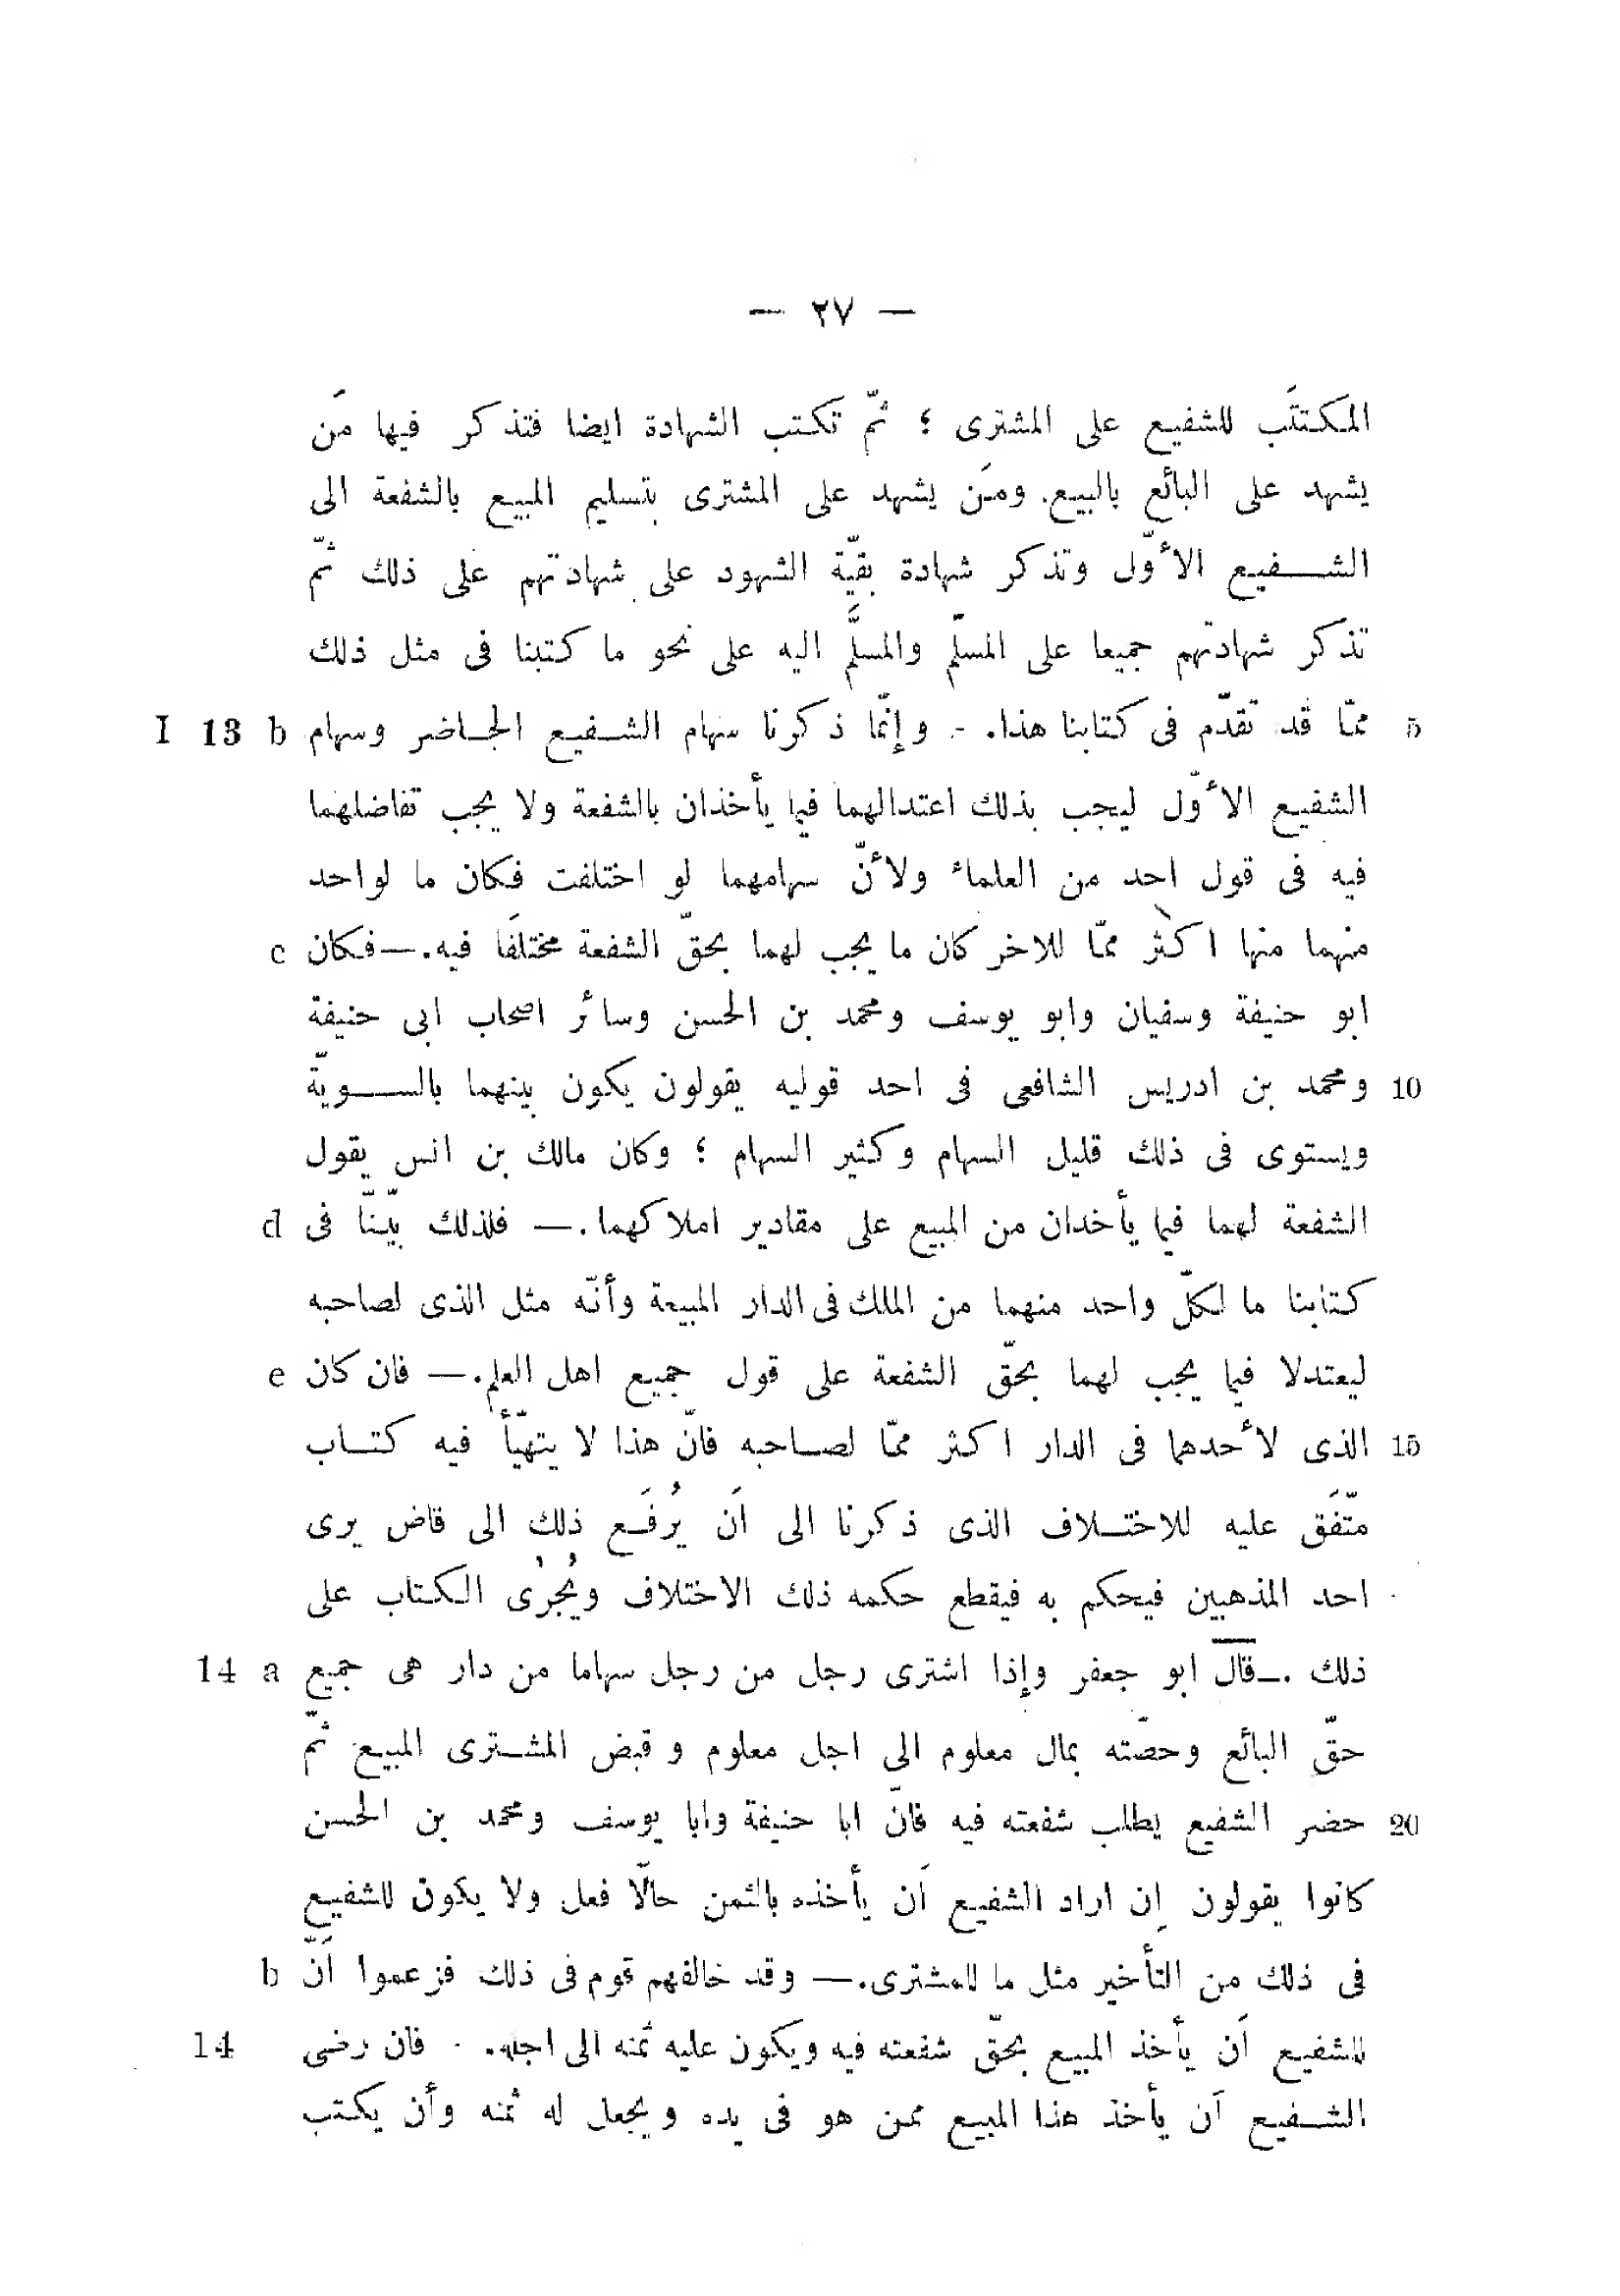 — ٢٧ —
المكتتَب للشفيع على المشترى ؛ ثمّ تكتب الشهادة ايضا فتذكر فيها مَن
يشهد على البائع بالبيع. ومَن يشهد على المشترى بتسليم المبيع بالشفعة الى
الشفيع الأوّل وتذكر شهادة بقيّة الشهود على شهادتهم على ذلك ثمّ
تذكر شهادتهم جميعا على المسلّم والمسلَّم اليه على نحو ما كتبنا فى مثل ذلك
5 ممّا قد تقدّم فى كتابنا هذا. - وإنّما ذكرنا سهام الشفيع الحاضر وسهام I 13 b
الشفيع الأوّل ليجب بذلك اعتدالهما فيما يأخذان بالشفعة ولا يجب تفاضلهما
فيه فى قول احد من العلماء ولأنّ سهامهما لو اختلفت فكان ما لواحد
منهما منها اكثر ممّا للاخر كان ما يجب لهما بحقّ الشفعة مختلَفا فيه. — فكان c
ابو حنيفة وسفيان وابو يوسف ومحمد بن الحسن وسائر اصحاب ابى حنيفة
10 ومحمد بن ادريس الشافعى فى احد قوليه يقولون يكون بينهما بالسويّة
ويستوى فى ذلك قليل السهام وكثير السهام ؛ وكان مالك بن انس يقول
الشفعة لهما فيما يأخدان من المبيع على مقادير املاكهما. — فلذلك بيّنّا فى d
كتابنا ما لكلّ واحد منهما من الملك فى الدار المبيعة وأنّه مثل الذى لصاحبه
ليعتدلا فيما يجب لهما بحقّ الشفعة على قول جميع اهل العلم. — فان كان e
15 الذى لأحدهما فى الدار اكثر ممّا لصاحبه فانّ هذا لا يتهيّأ فيه كتاب
متّفَق عليه للاختلاف الذى ذكرنا الى اَن يُرفَع ذلك الى قاض يرى
احد المذهبين فيحكم به فيقطع حكمه ذلك الاختلاف ويُجرٰى الكتاب على
ذلك .— قال ابو جعفر وإذا اشترى رجل من رجل سهاما من دار هى جميع 14 a
حقّ البائع وحصّته بمال معلوم الى اجل معلوم وقبض المشترى المبيع ثمّ
20 حضر الشفيع يطلب شفعته فيه فانّ ابا حنيفة وابا يوسف ومحمد بن الحسن
كانوا يقولون إن اراد الشفيع اَن يأخذه بالثمن حالّا فعل ولا يكون للشفيع
فى ذلك من التأخير مثل ما للمشترى. — وقد خالفهم قوم فى ذلك فزعموا اَنّ b
للشفيع اَن يأخذ المبيع بحقّ شفعته فيه ويكون عليه ثمنه الى اجله. - فان رضى 14
الشفيع اَن يأخذ هذا المبيع ممن هو فى يده ويجعل له ثمنه وأن يكتب